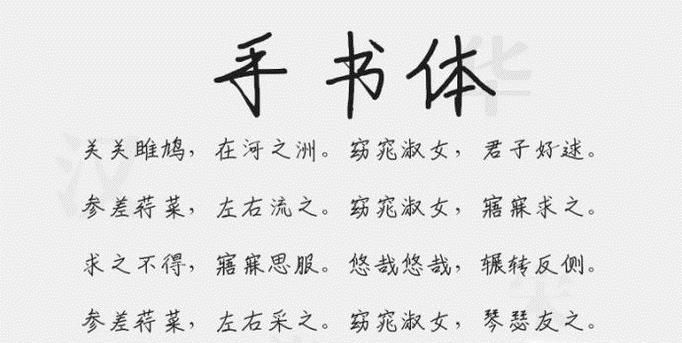 手书体
关关雎鸠，在河之洲。窈窕淑女，君子好逑。
参差荇菜，左右流之。窈窕淑女，寤寐求之。
求之不得，寤寐思服。悠哉悠哉，辗转反侧。
参差荇菜，左右采之。窈窕淑女，琴瑟友之。